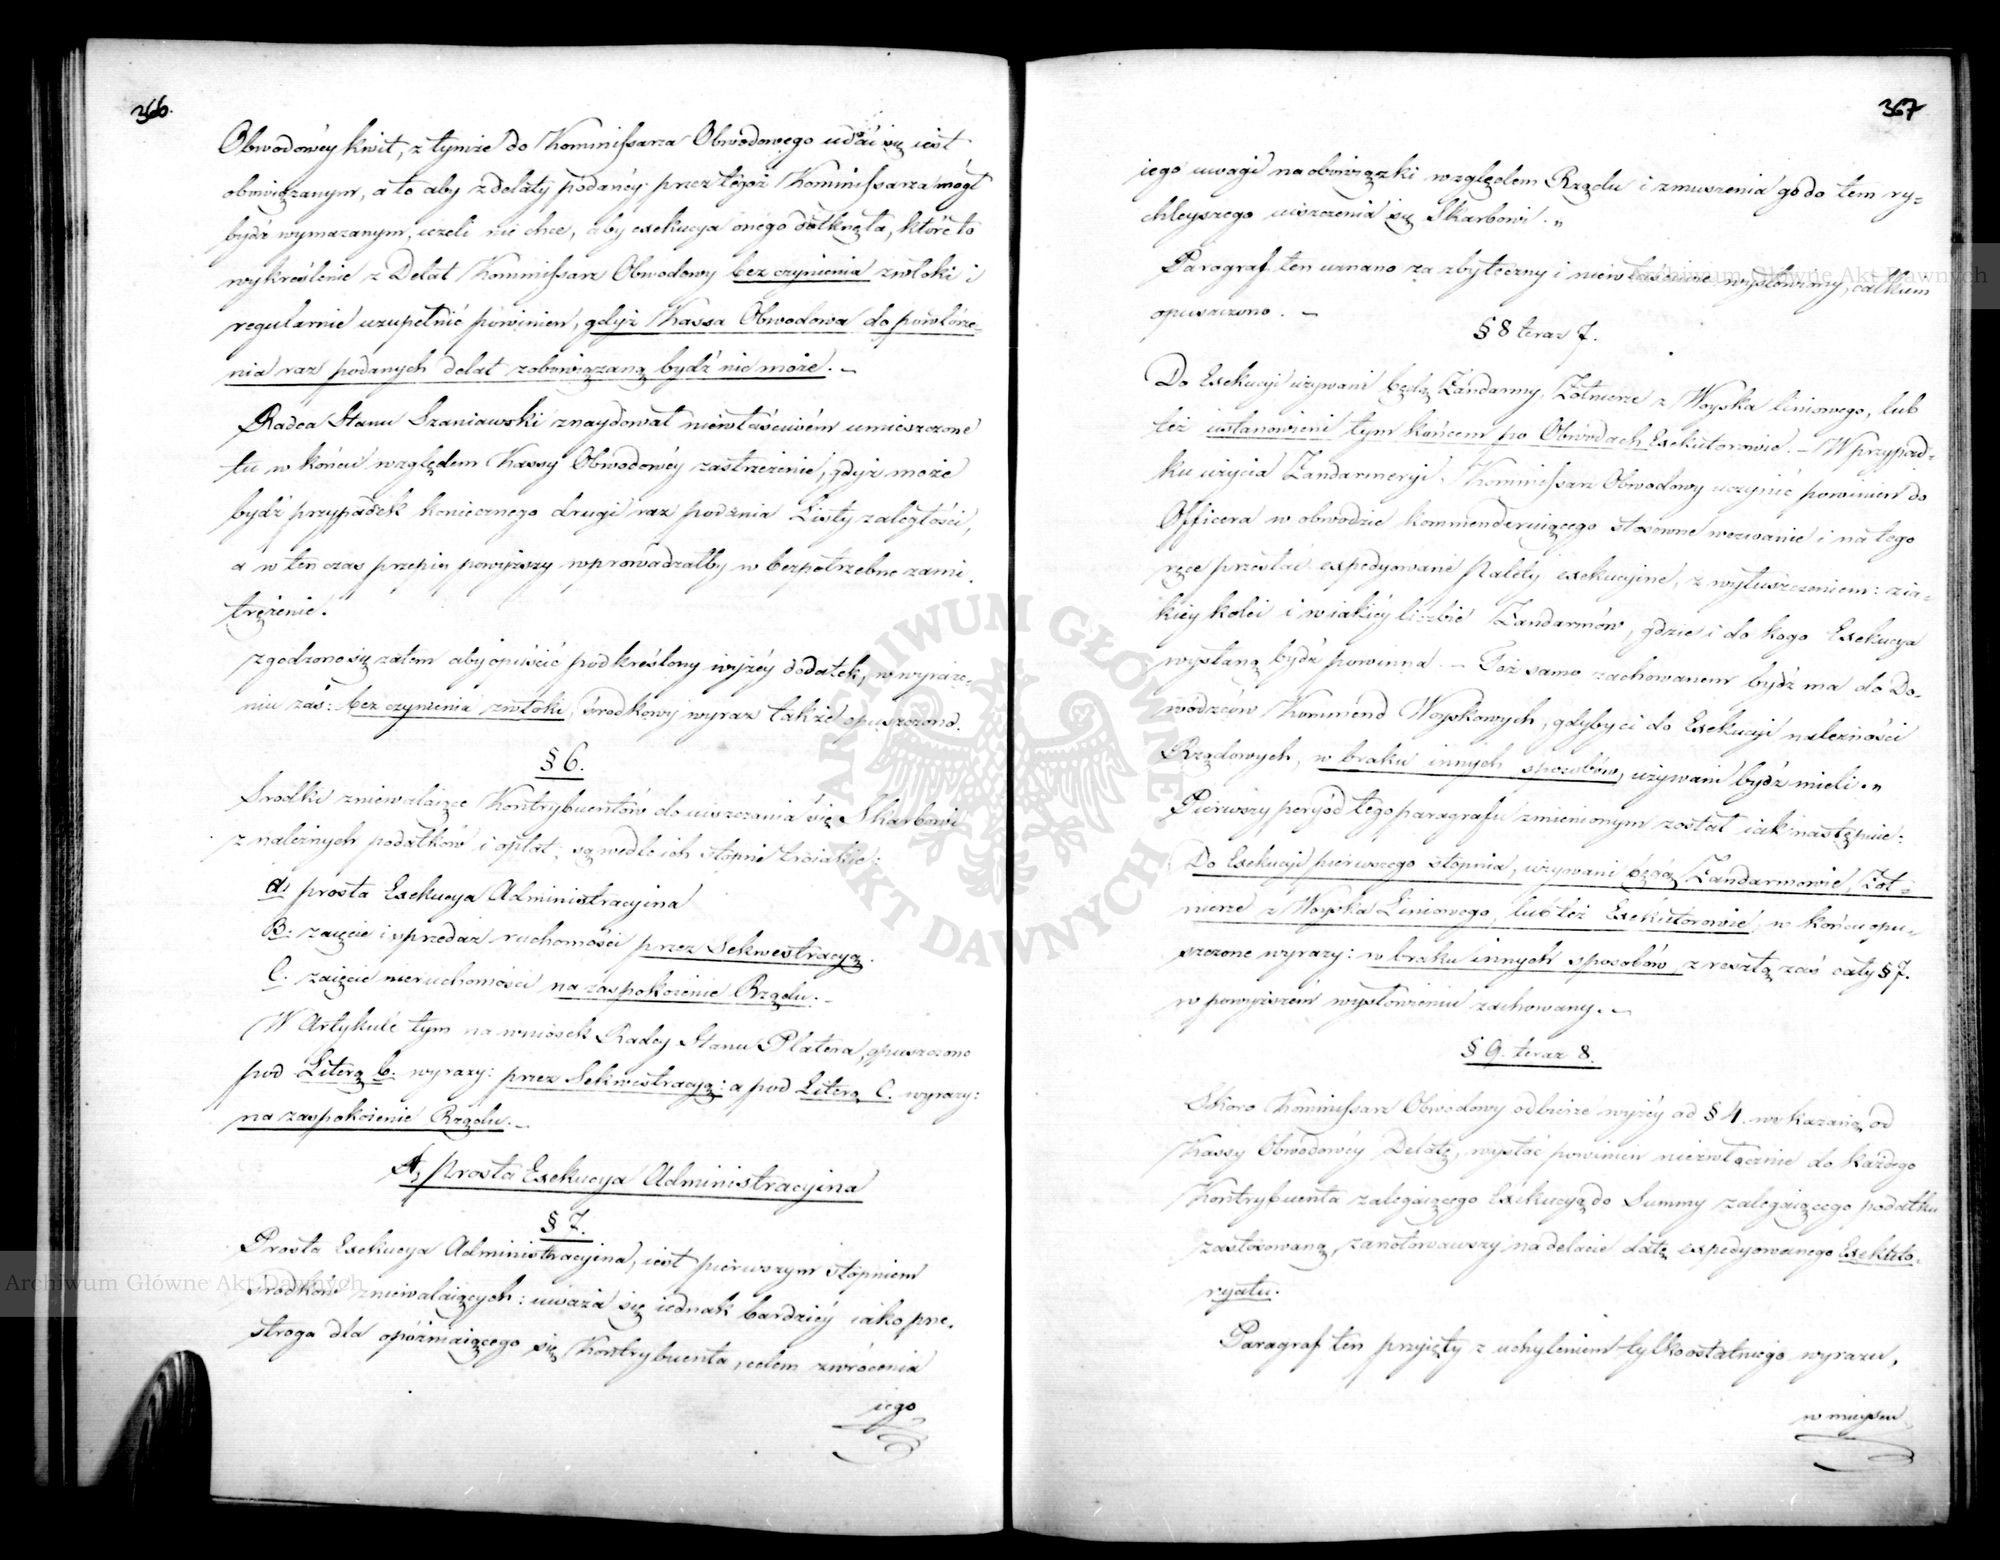 366.
Obwodowéy kwit, z tymże do Kommissarza Obwodowego udać się iest
obowiązanym, a to aby z delaty podanéy przez tegoż Kommissarza mógł
bydź wymazanym, ieżeli nie chce, aby exekucya onego dotknęła, które to
wykreślenie z Delat Kommissarz Obwodowy bez czynienia zwłoki i
regularnie uzupełnić powinien, gdyż Kassa Obwodowa do powtórze-
nia raz podanych delat zobowiązaną bydź nie może. —
Radca Stanu Szaniawski znaydował niewłaściwém umieszczone
tu w końcu względem Kassy Obwodowéy zastrzeżenie, gdyż może
bydź przypadek koniecznego drugi raz podania Listy zaległości,
a w ten czas przepis powyższy wprowadzałby w bezpotrzebne zami-
trężenie.
Zgodzono się zatém aby opuścić podkreślony wyżéy dodatek, w wyraże-
niu zaś: bez czynienia zwłoki, środkowy wyraz także opuszczono.
§ 6.
Srodki zniewalaiące Kontrybuentów do uiszczania się Skarbowi
z należnych podatków i opłat, są wedle ich stopni troiakie:
a. prosta Exekucya Administracyina
B. zaięcie i sprzedaż ruchomości przez Sekwestracyą.
C. zaięcie nieruchomości na zaspokoienie Rządu. —
W Artykule tym na wniosek Radcy Stanu Platera, opuszczono
pod Literą b. wyrazy: przez Sekwestracyą: a pod Literą C. wyrazy:
na zaspokoienie Rządu. —
A, Prosta Exekucya Administracyina
§ 7.
Prosta Exekucya Administracyina, iest pierwszym stopniem
środków zniewalaiących: uważa się iednak bardziéy iako prze-
stroga dla opóźniaiącego się Kontrybuenta, celem zwrócenia
iego
367
iego uwagi na obowiązki względem Rządu i zmuszenia go do tem ry-
chleyszego uiszczenia się Skarbowi. „
Paragraf ten uznano za zbyteczny i niewłaściwie wysłowiony, całkiem
opuszczono. —
§ 8 teraz 7.
Do Exekucyi używani będą Żandarmy, Żołnierze z Woyska liniowego, lub
też ustanowieni tym końcem po Obwodach Exekutorowie. — W przypad-
ku użycia Żandarmeryi, Kommissarz Obwodowy uczynić powinien do
Officera w obwodzie kommenderuiącego stosowne wezwanie i na tego
ręce przesłać expedyowane Palety exekucyine, z wyłuszczeniem: z ia-
kiéy kolei i w iakiéy liczbie Żandarmów, gdzie i do kogo Exekucya
wysłaną bydź powinna. — Toż samo zachowanem bydź ma do Do-
wódzców Kommend Woyskowych, gdyby ci do Exekucyi należności
Rządowych, w braku innych sposobów, używani bydź mieli. „
Pierwszy peryód tego paragrafu zmienionym został iak następuie:
Do Exekucyi pierwszego stopnia, używani będą Żandarmowie, Żoł-
nierze z Woyska Liniowego, lub też Exekutorowie, w końcu opu-
szczone wyrazy: w braku innych sposobów, z resztą zaś cały § 7.
w powyższém wysłowieniu zachowany. —
§ 9. teraz 8.
Skoro Kommissarz Obwodowy odbierze wyżéy ad § 4. wskazaną od
Kassy Obwodowéy Delatę, wysłać powinien niezwłócznie do każdego
Kontrybuenta zalegaiącego Exekucyą do Summy zalegaiącego podatku
zastosowaną, zanotowawszy na delacie datę expedyowanego Exekuto-
ryatu.
Paragraf ten przyięty z uchyleniem tylko ostatniego wyrazu,
w mieyscu
Archiwum Główne Akt Dawnych
Archiwum Główne Akt Dawnych
ARCHIWUM GŁÓWNE AKT DAWNYCH